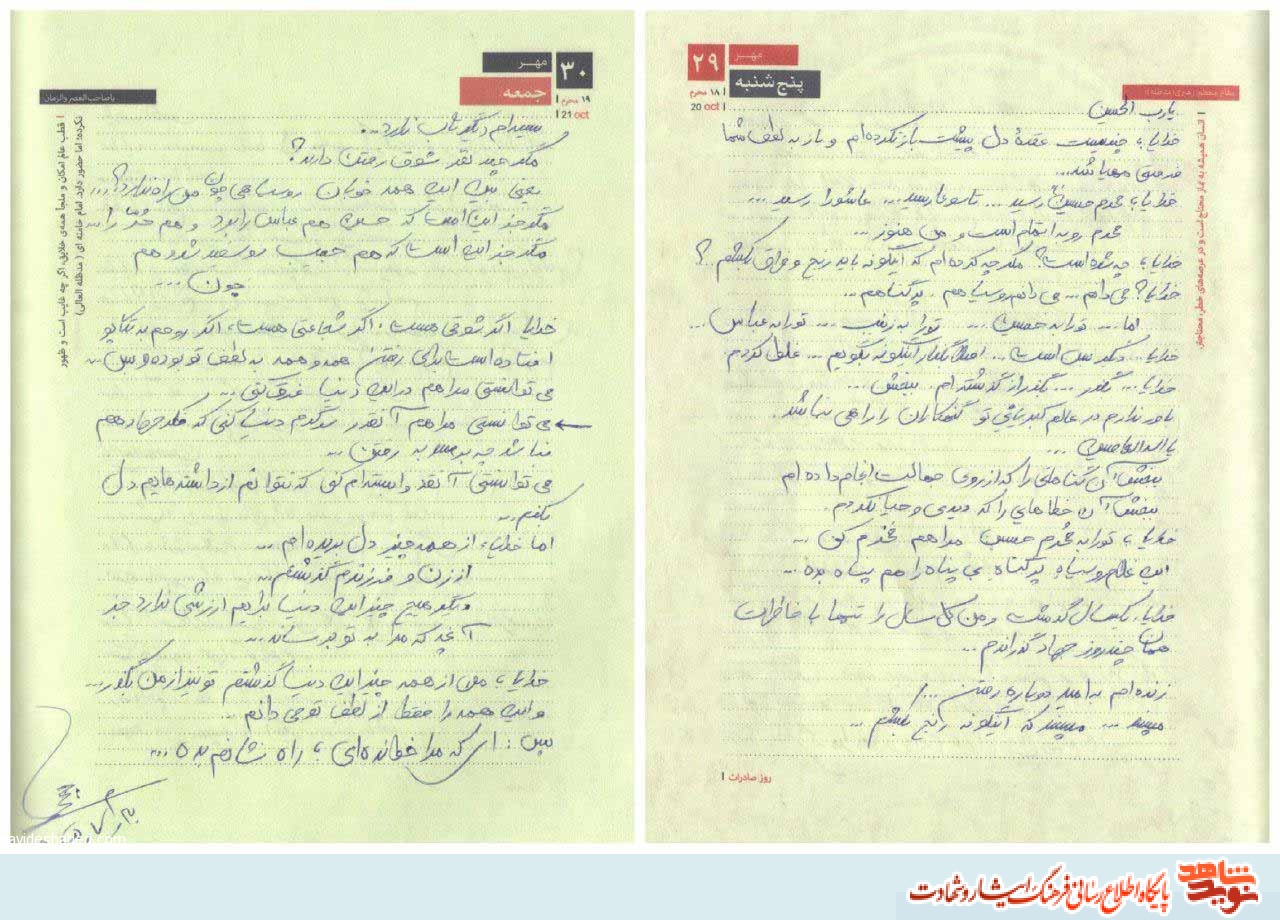 ۲۹
مهر
پنج شنبه
۱۸ محرم
20 oct
یارب الحسین
خدایا، چندیست عقدهٔ دل پیشت باز نکرده‌ام و باز به لطف شما
فرصتی مهیا شد...
خدایا، محرم حسین رسید... تاسوعا رسید... عاشورا رسید...
محرم رو به اتمام است و من هنوز...
خدایا، چه شده است؟ مگر چه کرده‌ام که اینگونه باید رنج و فراق بکشم..؟
خدایا؟ می‌دانم... می‌دانم روسیاهم. پرگناهم...
اما... تو را به حسین... تو را به زینب... تو را به عباس...
خدایا... دیگر بس است... اصلاً نگذار اینگونه بگویم... غلط کردم
خدایا... بگذر... بگذر از گذشته‌ام. ببخش...
باور ندارم در عالم کبریایی تو گنهکاران را راهی نباشد
یا اله العاصین...
ببخش آن گناهانی را که از روی جهالت انجام داده ام
ببخش آن خطاهایی را که دیدی و حیا نکردم.
خدایا، تو را به مُحرم حسین مرا هم مَحرم کن...
این غلام روسیاه پرگناه بی پناه را هم پناه بده...
خدایا، یکسال گذشت و من کل سال را تنها با خاطرات
همان چند روز جهاد گذراندم...
زنده‌ام به امید دوباره رفتن...!
مپسند... مپسند که اینگونه رنج بکشم...
روز صادرات
انسان همیشه به نماز محتاج است و در عرصه‌های خطر، محتاج‌تر
۳۰
مهر
جمعه
۱۹ محرم
21 oct
یا صاحب العصر والزمان
سیدام دیگر تاب ندارد...
مگر چند نفر شوق رفتن دارند؟
یعنی بین این همه خوبان روسیاهی چون من راه ندارد؟...
مگر جز این است که حسین هم عباس را برد و هم حُر را...
مگر جز این است که هم حبیب روسفید شد و هم
جون...
خدایا اگر شوقی هست، اگر شجاعتی هست، اگر روحم به تکاپو
افتاده است برای رفتن همه و همه به لطف تو بوده و بس...
می‌توانستی مرا هم در این دنیا غرق کنی...
می توانستی مرا هم آنقدر سرگرم دنیا کنی که فکر جهاد هم
نباشد چه برسد به رفتن...
می توانستی آنقدر وابسته‌ام کنی که نتوانم از داشته‌هایم دل
بکنم...
اما خدایا، از همه چیز دل بریده‌ام...
از زن و فرزندم گذشتم...
دیگر هیچ چیز این دنیا برایم ارزشی ندارد جز
آنچه که مرا به تو برساند...
خدایا، من از همه چیز این دنیا گذشتم تو نیز از من بگذر...
و این همه را فقط از لطف تو می دانم...
پس: ای که مرا خوانده‌ای، راه نشانم بده...
قطب عالم امکان و ملجأ همه‌ی خلایق، اگر چه غایب است و ظهور
نکرده؛ اما حضور دارد. امام خامنه ای (مدظله العالی)
نوید شاهد
پایگاه اطلاع رسانی فرهنگ ایثار و شهادت